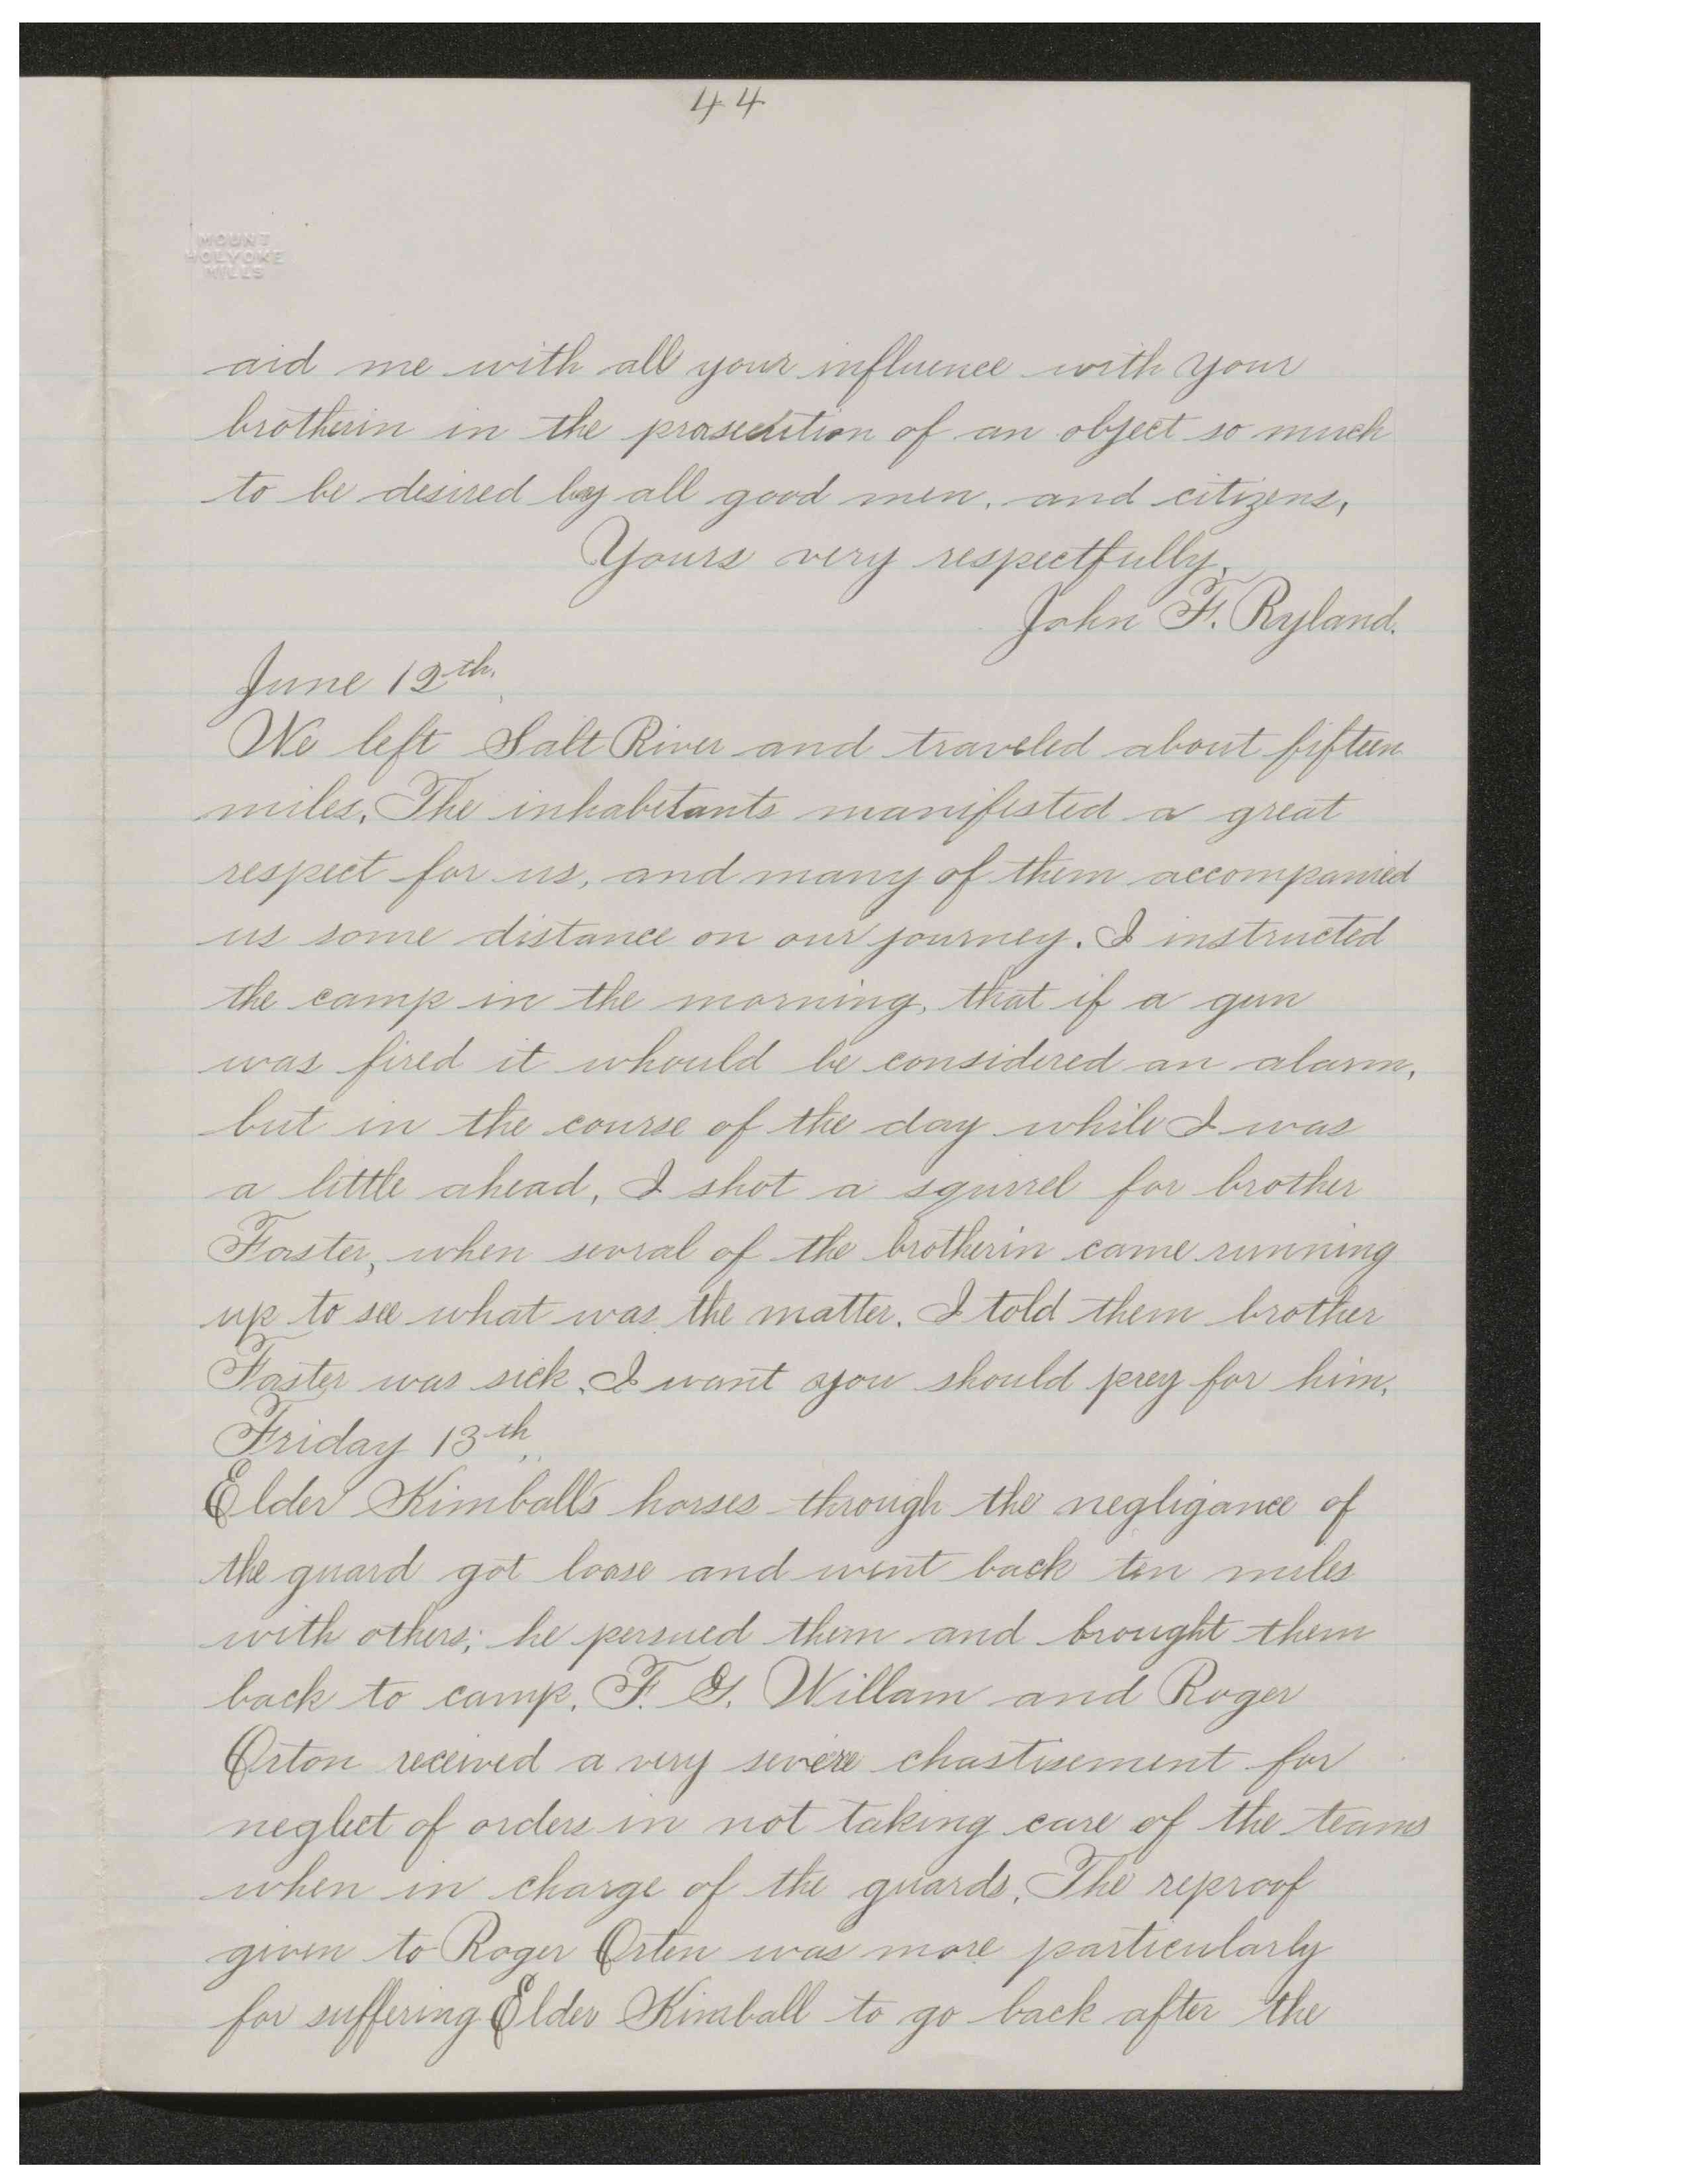 44
MOUNT
HOLYOKE
MILLS
aid me with all your influence with your
brotherin in the prosecution of an object so much
to be desired by all good men, and citizens,
Yours very respectfully,
John F. Ryland.
June 12th.
We left Salt River and traveled about fifteen
miles, The inhabitants manifested a great
respect for us, and many of them accompanied
us some distance on our journey. I instructed
the camp in the morning, that if a gun
was fired it whould be considered an alarm,
but in the course of the day while I was
a little ahead, I shot a squirrel for brother
Foster, when sevral of the brotherin came running
up to see what was the matter. I told them brother
Foster was sick, I want you should prey for him,
Friday 13th,
Elder Kimball's horses through the negligance of
the guard got loose and went back ten miles
with others; he persued them and brought them
back to camp, F. G. Willam and Roger
Orton received a very severe chastisement for
neglect of orders in not taking care of the teams
when in charge of the guards, The reproof
given to Roger Orten was more particularly
for suffering Elder Kimball to go back after the